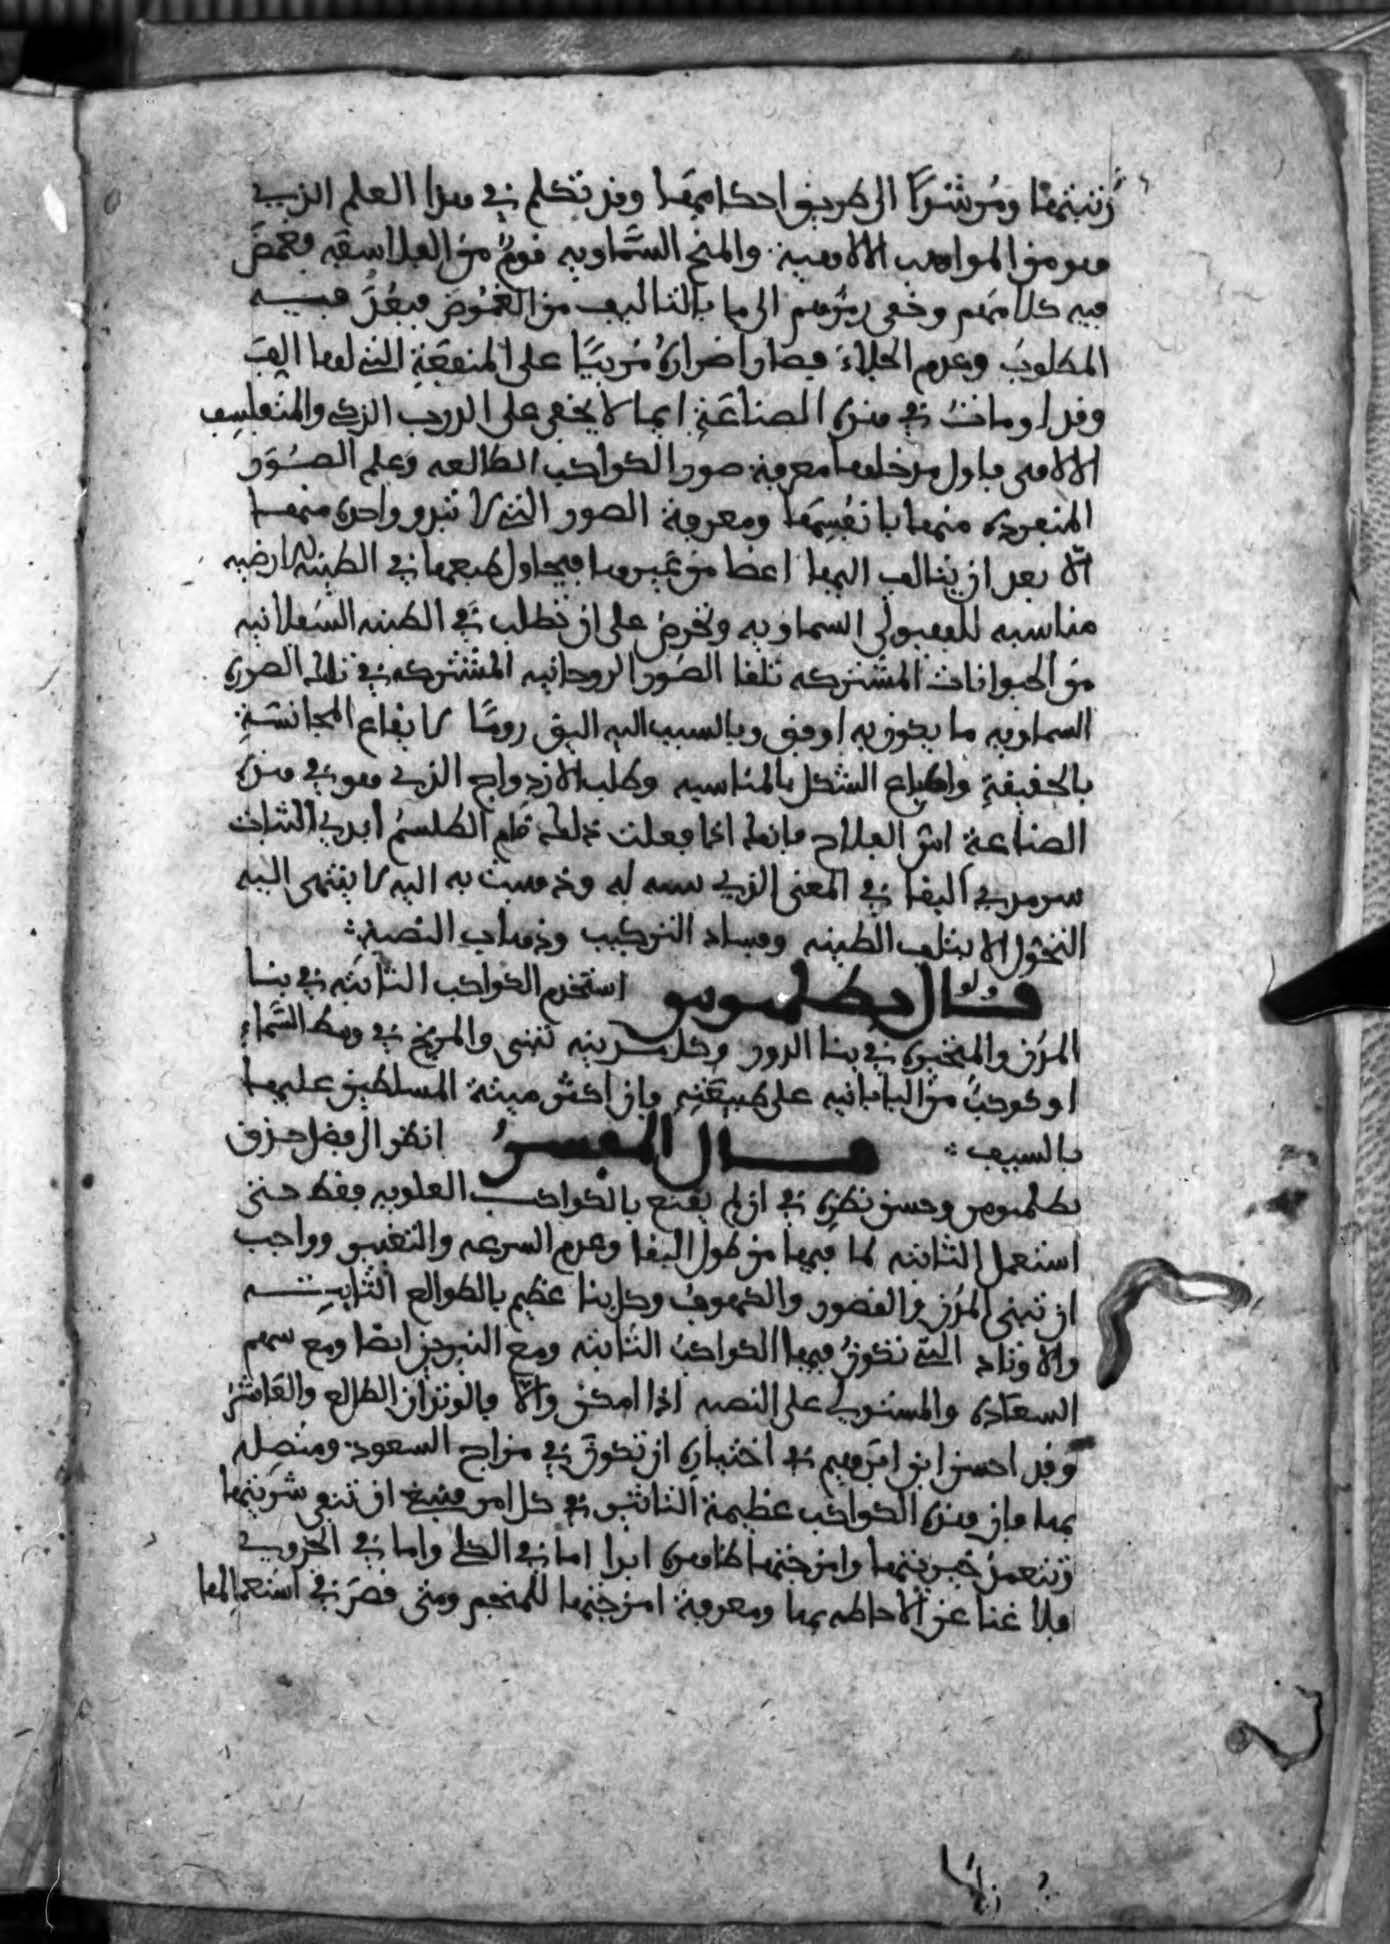 رتبتها ومرشدا الى طريق احكامها وقد تكلم في هذا العلم الذي
هو من المواهب الالاهية والمنح السماوية قوم من الفلاسفة فغمض
فيه كلامهم وخفى رمزهم الى ما بالتاليف من الغموض فبعد فيه
المطلوب وعدم الجلاء فصار اضراره مربيا على المنفعة التي لها الف
وقد اومات في هذه الصناعة ايما لا يخفى على الدرب الذكي والمتفلسف
الالاهي فاول مدخلها معرفة صور الكواكب الطالعه وعلم الصور
المنفردة منها بانفسها ومعرفة الصور التي لا تبدو واحدة منها
الا بعد ان يتالف اليها اعضا من غيرها فيحاول طبعها في الطينة الارضيه
مناسبه للهيولى السماويه وتحرص على ان تطلب في الطينه السفلانيه
من الحيوانات المشتركه تلقا الصور الروحانيه المشتركه في تلك الصورة
السماويه ما يكون به اوفق وبالسبب اليه اليق روما لايقاع المجانسة
بالحقيقة واطباع الشكل بالمناسبه وطلب الازدواج الذي هو في هذه
الصناعة اس الفلاح فانك اذا فعلت ذلك قام الطلسم ابدي الثبات
سرمدي البقا في المعنى الذي له وذهبت به اليه لا ينتهى اليه
التحول الا بتلف الطينه وفساد التركيب وذهاب النصبة
قال بطلميوس استخدم الكواكب الثابته في بنا
المدن والمتحيرة في بنا الدور وكل مدينه تبنى والمريخ في وسط السماء
او كوكب من البابانيه على طبيعته فان اكثر ميتة المسلطين عليها
بالسيف قال المفسر انظر الى فضل حذق
بطلميوس وحسن نظره في ان لم يقنع بالكواكب العلويه فقط حتى
استعمل الثابته لما فيها من طول البقا وعدم السرعه والتغير وواجب
ان تبنى المدن والقصور والكهوف وكل بنا عظيم بالطوالع الثابته
والاوتاد التي تكون فيها الكواكب الثابته ومع النيرين ايضا ومع سهم
السعادة والمستولي على النصبه اذا امكن والا فالوتران الطالع والعاشر
وقد احسن ابن ابرهيم في اختياره ان تكون في مزاج السعود ومتصله
بها فان هذه الكواكب عظيمة التاثير في كل امر فينبغي ان تتقى شريتها
وتتعمد خيريتها وامزجتها ظاهرة ابدا اما في الكل واما في الجزوي
فلا غنا عن الاحاطه بها ومعرفة امزجتها للمنجم ومتى قصر في استعمالها